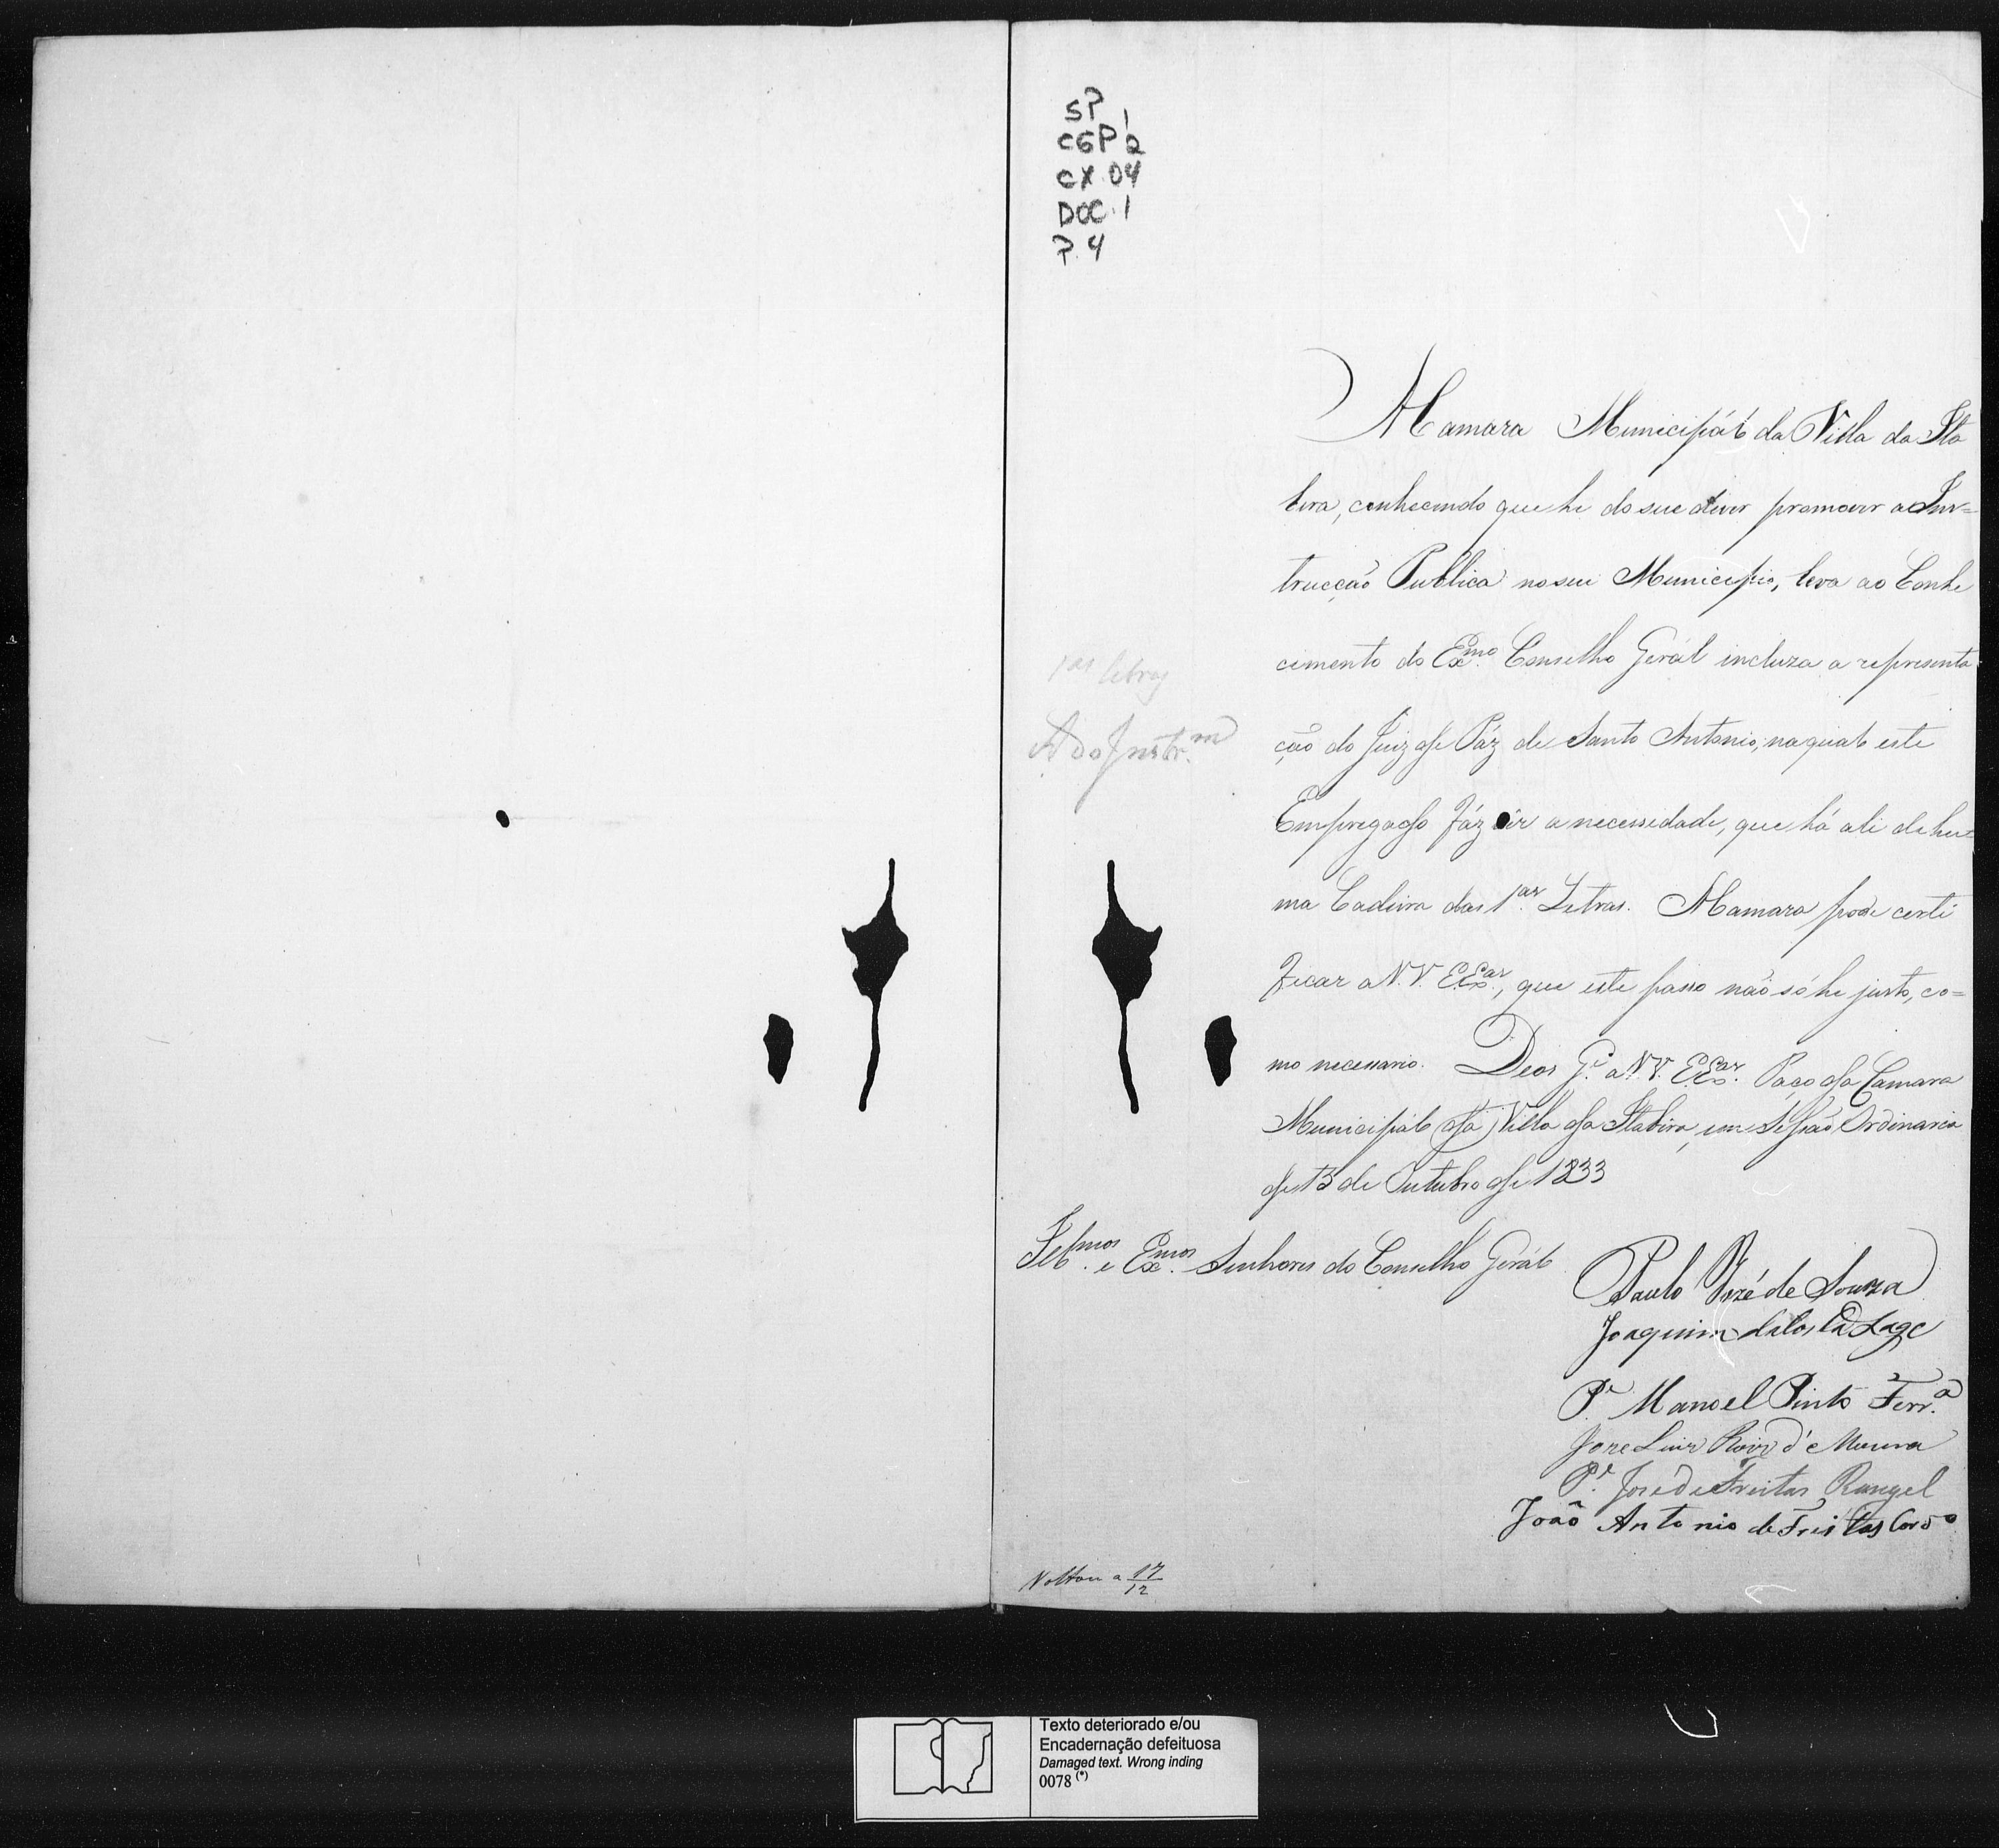 SP
CGP 1
2
CX. 04
DOC. 1
P. 4
A Camara Municipál da Villa da Ita
bira, conhecendo que he do seu dever promover a Ins=
trucção Publica no seu Municipio, leva ao Conhe
cimento do Exmo. Conselho Gerál incluza a representa
ção do Juiz de Páz de Santo Antonio, na qual este
Empregado fáz vêr a necessidade, que há ali de hu=
ma Cadeira das 1as. Letras. A Camara pode certi
ficar a V.V. EExas., que este passo não só he justo, co=
mo necessario. Deos Ge. a V.V. EExas. Paço da Camara
Municipál da Villa da Itabira, em Sessão Ordinaria
de 13 de Outubro de 1833
1as letras
A Do Instr.m
Illmos. e Exmos. Senhores do Conselho Gerál
Paulo José de Souza
Joaquim da Costa Lage
Pe. Manoel Pinto Ferr.a
Joze Luis Roiz d'e Moura
Pe. José de Freitas Rangel
João Antonio de Freitas
Voltou a 17/12
Texto deteriorado e/ou
Encadernação defeituosa
Damaged text. Wrong inding
0078 (*)